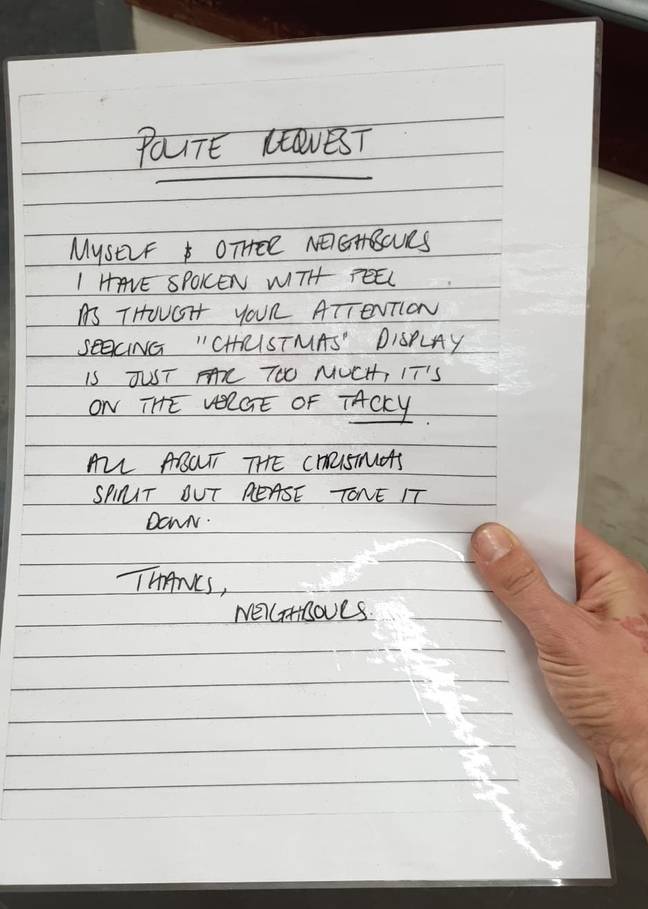 POLITE REQUEST
MYSELF & OTHER NEIGHBOURS
I HAVE SPOKEN WITH FEEL
AS THOUGH YOUR ATTENTION
SEEKING "CHRISTMAS" DISPLAY
IS JUST FAR TOO MUCH, IT'S
ON THE VERGE OF TACKY.
ALL ABOUT THE CHRISTMAS
SPIRIT BUT PLEASE TONE IT
DOWN.
THANKS,
NEIGHBOURS.